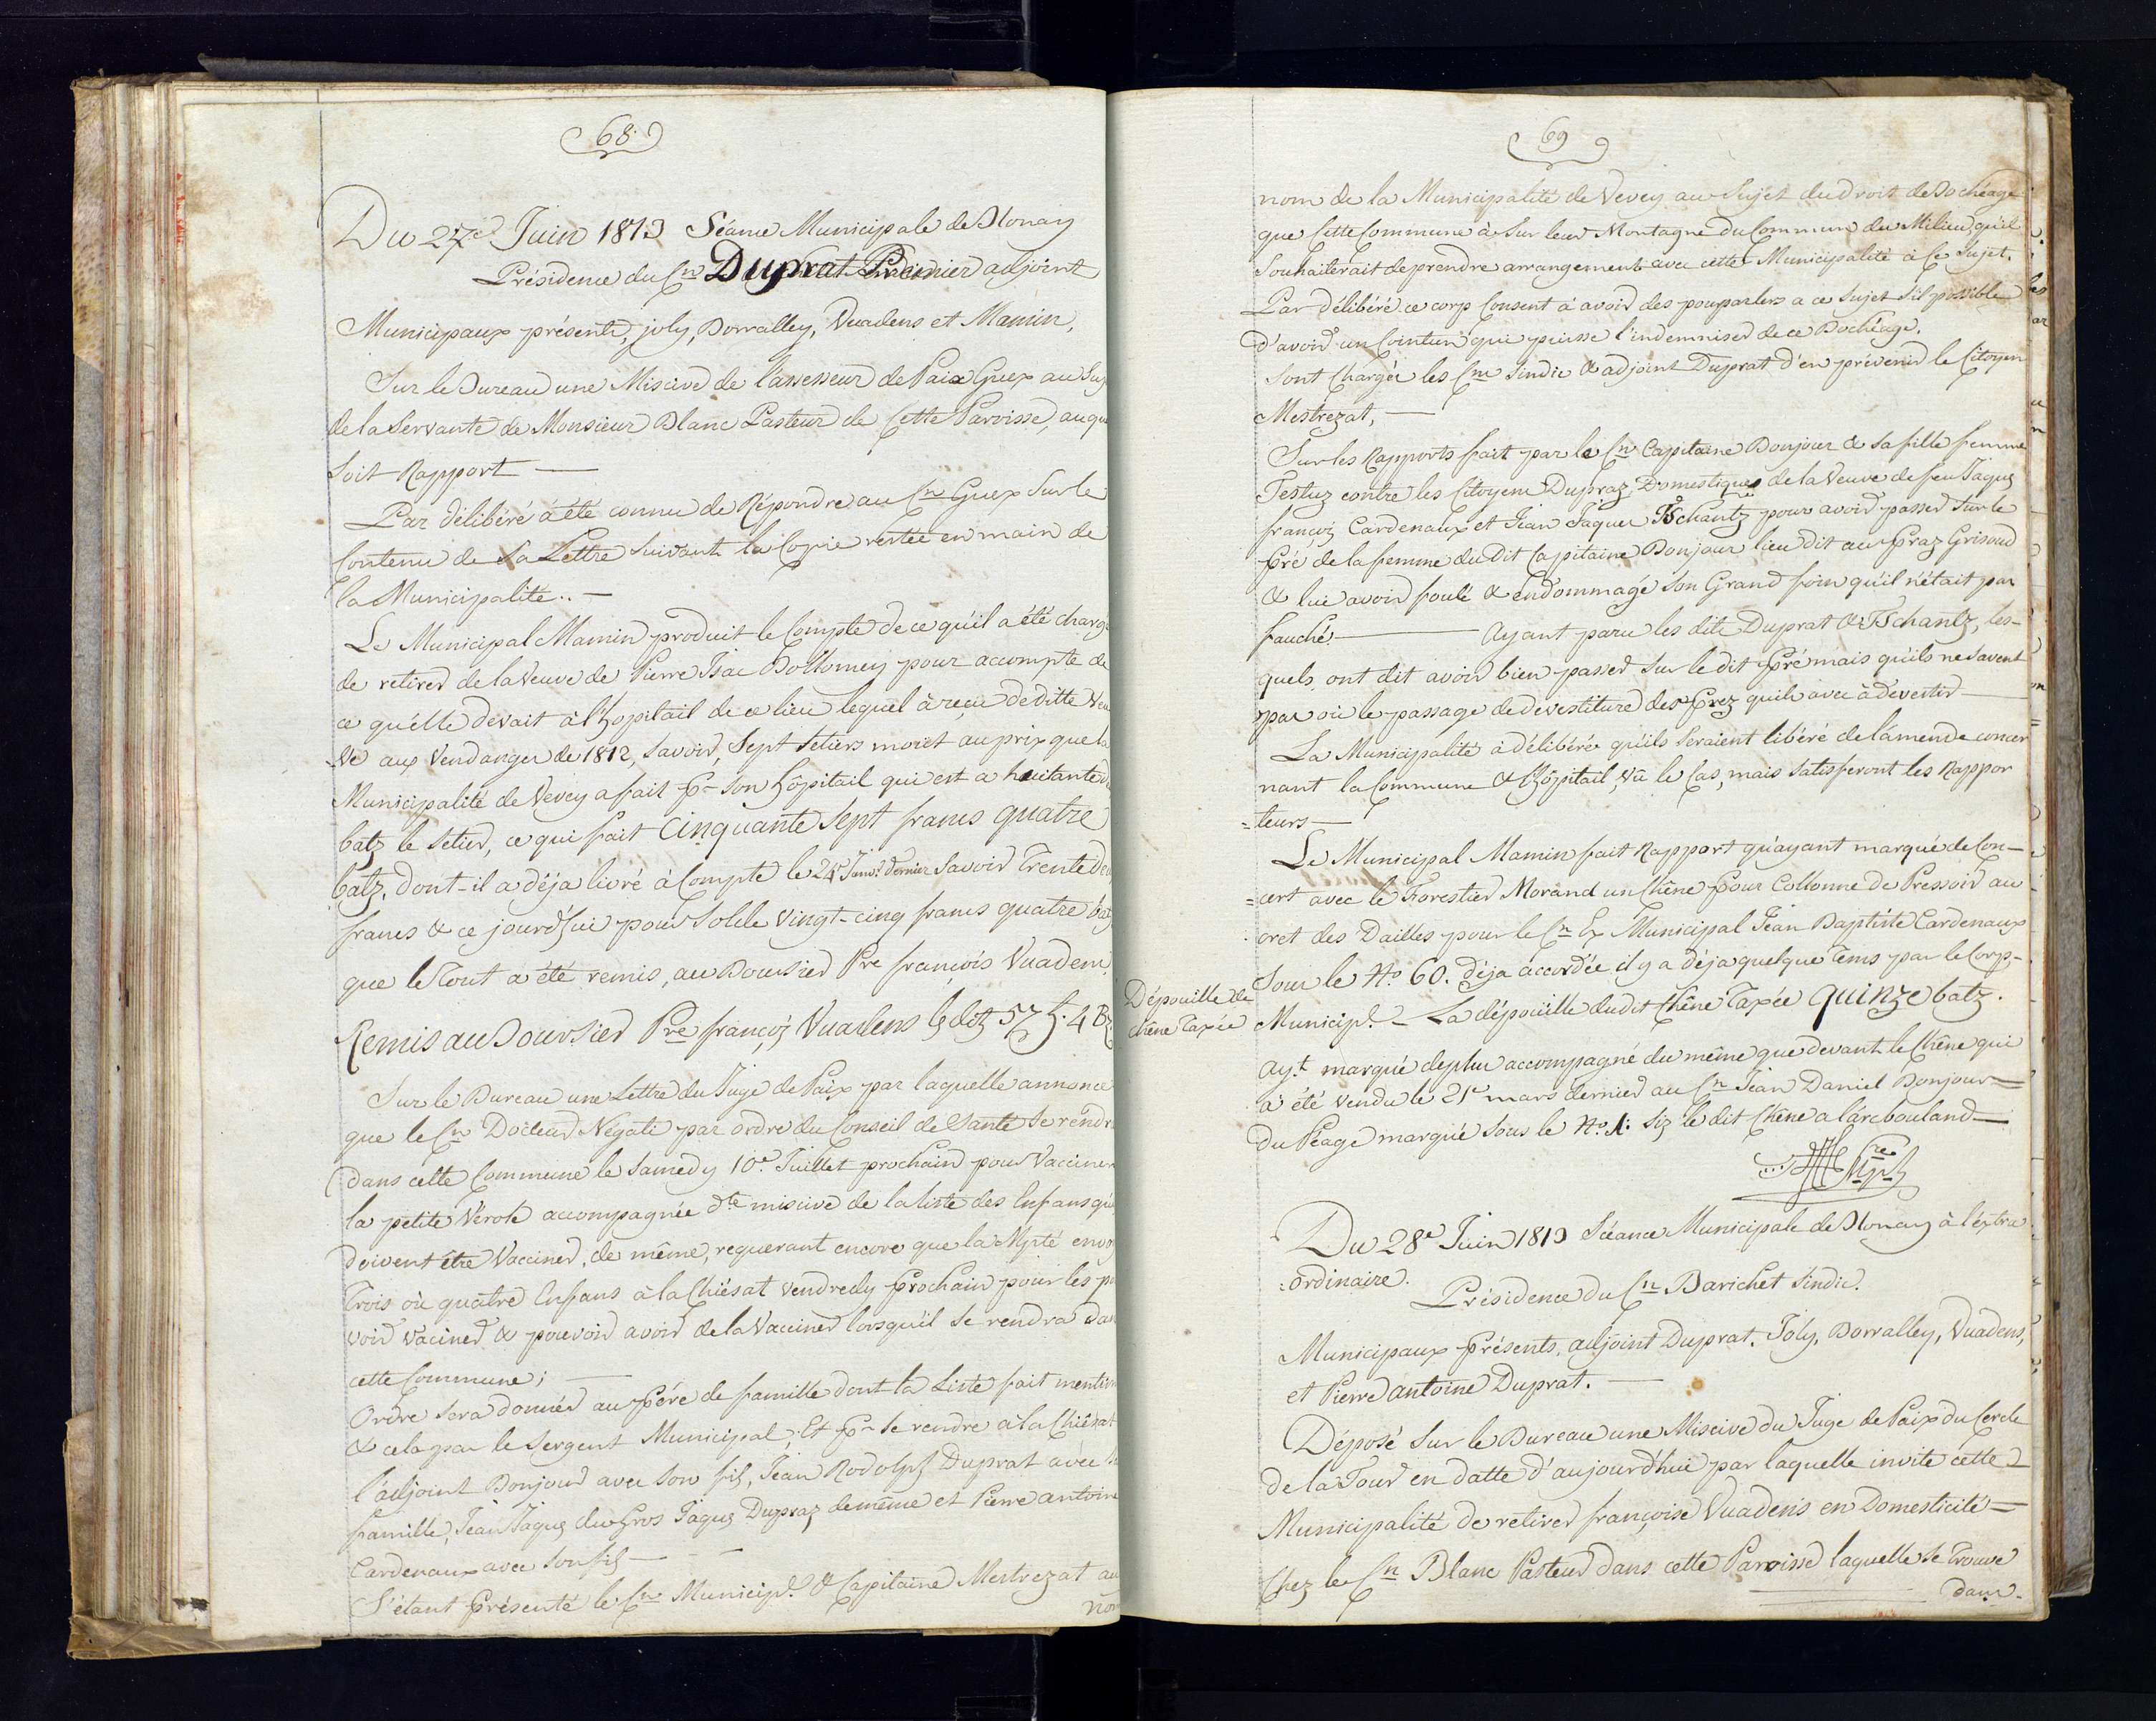 68.
Du 27e Juin 1813 Séance Municipale de Blonay
Présidence du Cn Duprat Premier adjoint
Municipaux présents, joly, Borralley, Vuadens et Mamin,
Sur le Bureau une Miscive de l'assesseur de Paix Guex au Suj
de la Servante de Monsieur Blanc Pasteur de Cette Paroisse, auqu
soit Rapport —
Par délibéré à été connu de Répondre au Cn Guex Sur le
Contenu de Sa Lettre suivant la Copie restée en main de
la Municipalité.. —
Le Municipal Mamin produit le Compte de ce qu'il a été chargé
de retirer de la Veuve de Pierre Isac Bottomey pour accompte de
ce qu'elle devait à l'hopitail de ce lieu lequel à reçu de ditte Veu
-ve aux Vendanges de 1812, Savoir, Sept Setiers mout au prix que la
Municipalité de Vevey a fait pr son hôpitail qui est a huitante d
batz le Setier, ce qui fait Cinquante Sept francs quatre
batz, dont-il a déja livré à Compte le 24e Janvr. dernier Savoir Trente d
francs & ce jourd'hui pour Solde vingt-cinq francs quatre bat
que le Tout a été remis, au Boursier Pre françois Vuadens
Remis au Boursier Pre françois Vuadens les dits 57 f. 4 Bz
Sur le Bureau une Lettre du Juge de Paix par laquelle annonce
que le Cn Docteur Négati par ordre du Conseil de Santé Se rendr
dans cette Commune le Samedy 10e Juillet prochain pour Vacciner
la petite Vérole accompagnée dte miscive de la liste des Enfans qui
doivent être Vacciner, de même, requerant encore que la Mpté envoy
Trois où quatre Enfans à la Chiésat Vendredy prochain pour les p
voir vaciner & pouvoir avoir de la Vacciner lorsqu'il Se rendra dan
cette Commune; —
Ordre sera donner au père de famille dont la Liste fait mention
& cela par le Sergent Municipal; Et pr Se rendre à la Chiésat
l'adjoint Bonjour avec son fils, Jean Rodolph Duprat avec s
famille, Jean Jaques du Gros Jaques Dupraz demême et Pierre antoine
Cardenaux avec son fils —
S'étant présenté le Cn Municipl. & Capitaine Mestrezat au
nom
69
nom de la Municipalité de Vevey au Sujet du droit de Bocheage
que Cette Commune à Sur leur Montagne du Commun du Milieu, qu'il
Souhaiterait de prendre arrangement avec cette Municipalité à Ce Sujet.
Par délibéré ce corp Consent à avoir des pourparlers a ce Sujet S'il possible
d'avoir un Cointun qui puisse l'indemniser de ce Bochéage.
Sont Chargés les Cns Sindic & adjoint Duprat d'en prévenir le Citoyen
Mestrezat, —
Sur les Rapports fait par le Cn Capitaine Bonjour & Sa fille femme
Testuz contre les Citoyens Dupraz, Domestiques de la Veuve de feu Jaques
françois Cardenaux et Jean Jaques Tschantz pour avoir passer Sur le
pré de la femme du Dit Capitaine Bonjour lieu dit au praz Grisoud
& lui avoir foulé & endommagé Son Grand foin qu'il n'était pas
fauché. — Ayant paru les dits Duprat & Tschantz, les-
quels ont dit avoir bien passer Sur le dit pré mais qu'ils ne Savent
pas où le passage de devestiture des Prez qu'ils avec à devester —
La Municipalité à délibérée qu'ils Seraient libéré de l'amende concer
nant la Commune & l'hôpitail, vû le Cas, mais Satisferont les Rappor
=teurs —
Le Municipal Mamin fait Rapport qu'ayant marqué de Con-
=cert avec le Forestier Morand un Chêne pour Collonne de Pressoir au
cret des Dailles pour le Cn Ex Municipal Jean Baptiste Cardenaux
Sous le No. 60. déja accordée il y a déja quelque tems par le Corp-
Dépouille de
chêne Taxée
Municipl. — La dépouille dudit Chêne Taxée quinze batz.
ayt. marqué deplus accompagné du même que devant le Chêne qui
a été vendu le 21e mars dernier au Cn Jean Daniel Bonjour =
du Péage marqué Sous le No. 1. Siz le dit Chêne a l'arcbouland —
Du 28e Juin 1813 Séance Municipale de Blonay à l'extra
:ordinaire.
Présidence du Cn Barichet Sindic.
Municipaux présents, adjoint Duprat, Joly, Borralley, Vuadens,
et Pierre antoine Duprat. —
Déposé Sur le Bureau une Miscive du Juge de Paix du Cercle
de la Tour en datte d'aujourd'hui par laquelle invite cette
Municipalité de retirer françoise Vuadens en Domesticité =
Chez le Cn Blanc Pasteur dans cette Paroisse laquelle Se Trouve
dans.